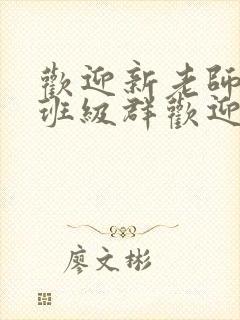 歡迎新老師
班級群歡迎
廖文彬